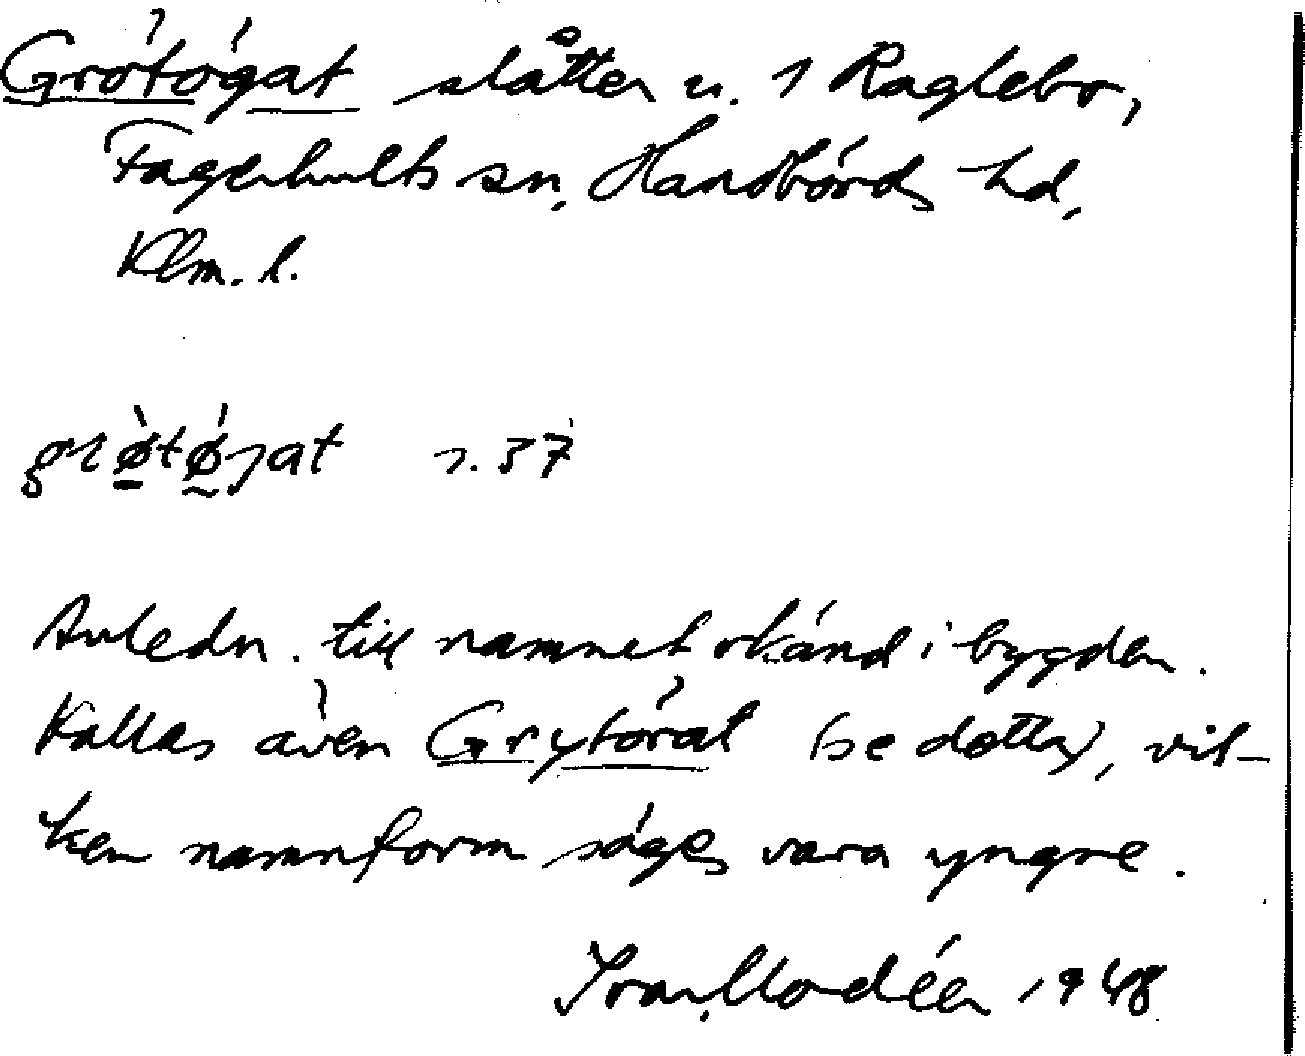 Grötögat slåtter u. 1 Raglebo,
Fagerhults sn, Handbörds hd,
Klm. l.
grø̀tǿgat s. 37
Anledn. till namnet okänd i bygden.
Kallas även Grytörat (se detta), vil-
ken namnform säges vara yngre.
Ivar Modéer 1948